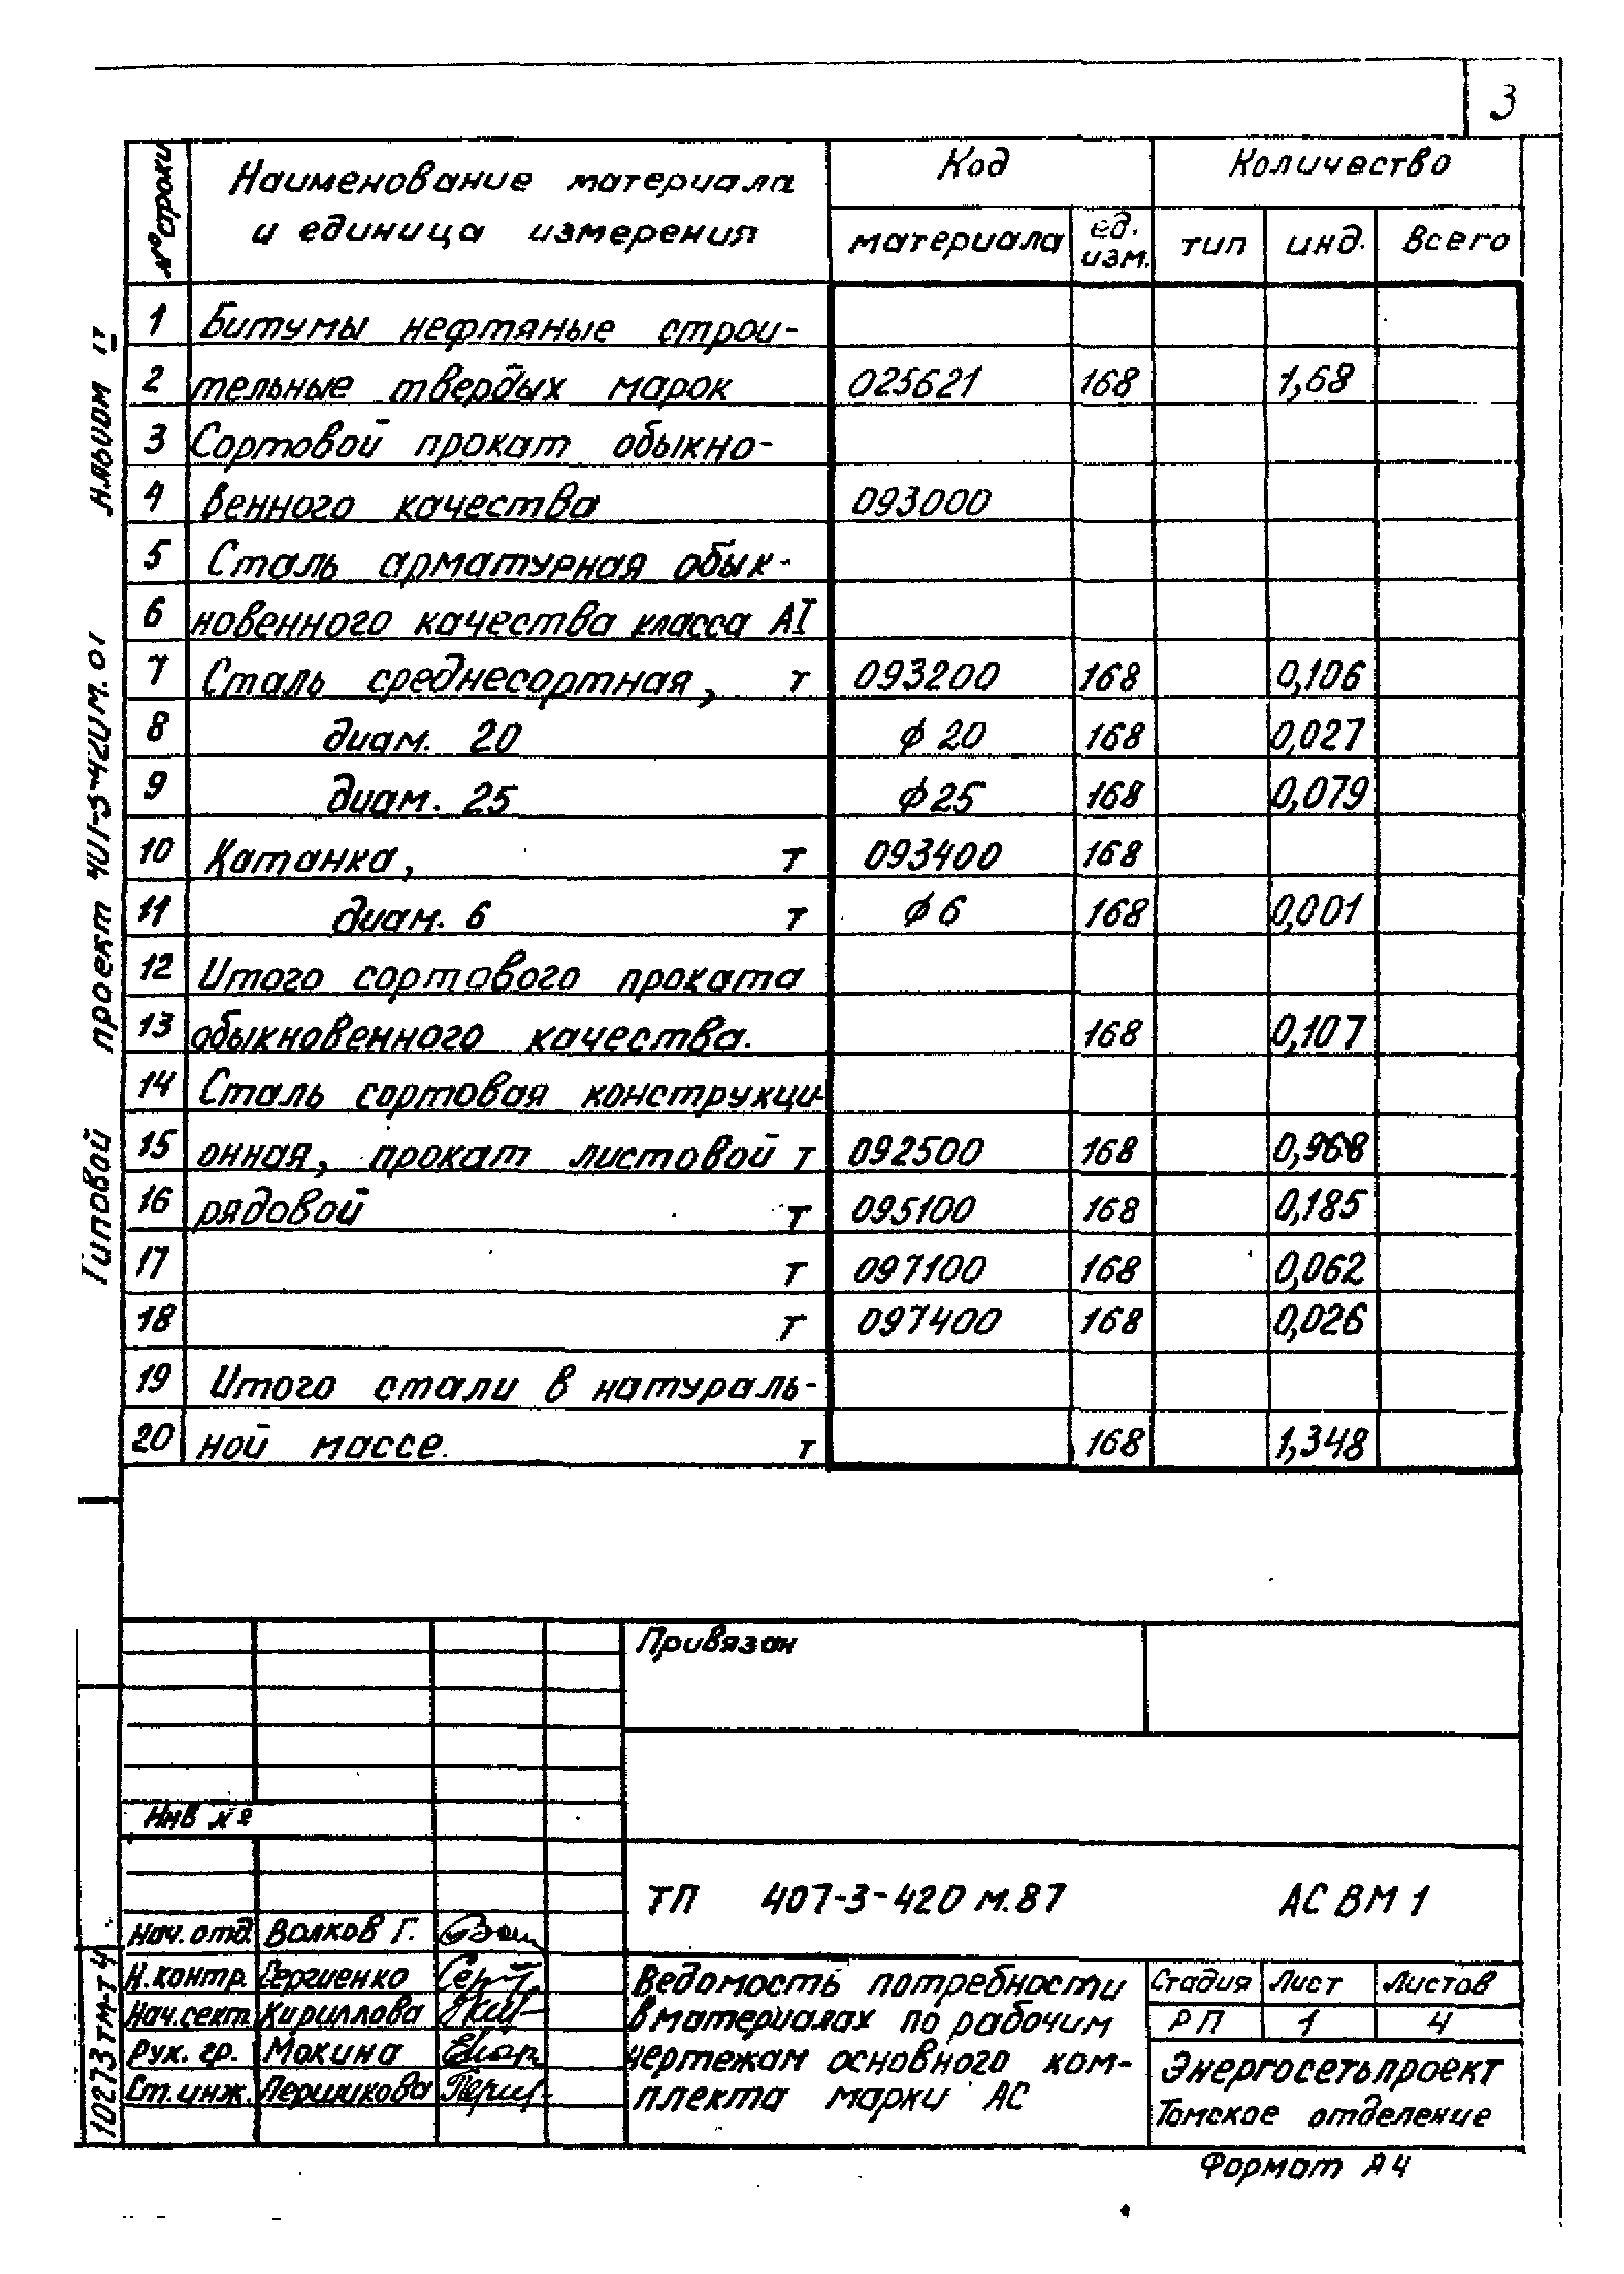 3
№ строки
Наименование материала
и единица измерения
Код
Количество
материала
ед.
изм.
тип
инд.
Всего
1 Битумы нефтяные строи-
2 тельные твердых марок 025621 168 1,68
3 Сортовой прокат обыкно-
4 венного качества 093000
5 Сталь арматурная обык-
6 новенного качества класса АI
7 Сталь среднесортная, т 093200 168 0,106
8 диам. 20 ф 20 168 0,027
9 диам. 25 ф 25 168 0,079
10 Катанка, т 093400 168
11 диам. 6 т ф 6 168 0,001
12 Итого сортового проката
13 обыкновенного качества. 168 0,107
14 Сталь сортовая конструкци-
15 онная, прокат листовой т 092500 168 0,968
16 рядовой т 095100 168 0,185
17 т 097100 168 0,062
18 т 097400 168 0,026
19 Итого стали в натураль-
20 ной массе. т 168 1,348
Типовой проект Альбом
Привязан
Инв №
ТП 407-3-420 м.87 АС ВМ 1
Нач. отд. Волков Г.
Н.контр. Сергиенко
Нач.сект. Кириллова
Рук. гр. Мокина
Ст.инж. Першикова
Ведомость потребности
в материалах по рабочим
чертежам основного ком-
плекта марки АС
Стадия Лист Листов
РП 1 4
Энергосетьпроект
Томское отделение
10273тм-т4
Формат А4